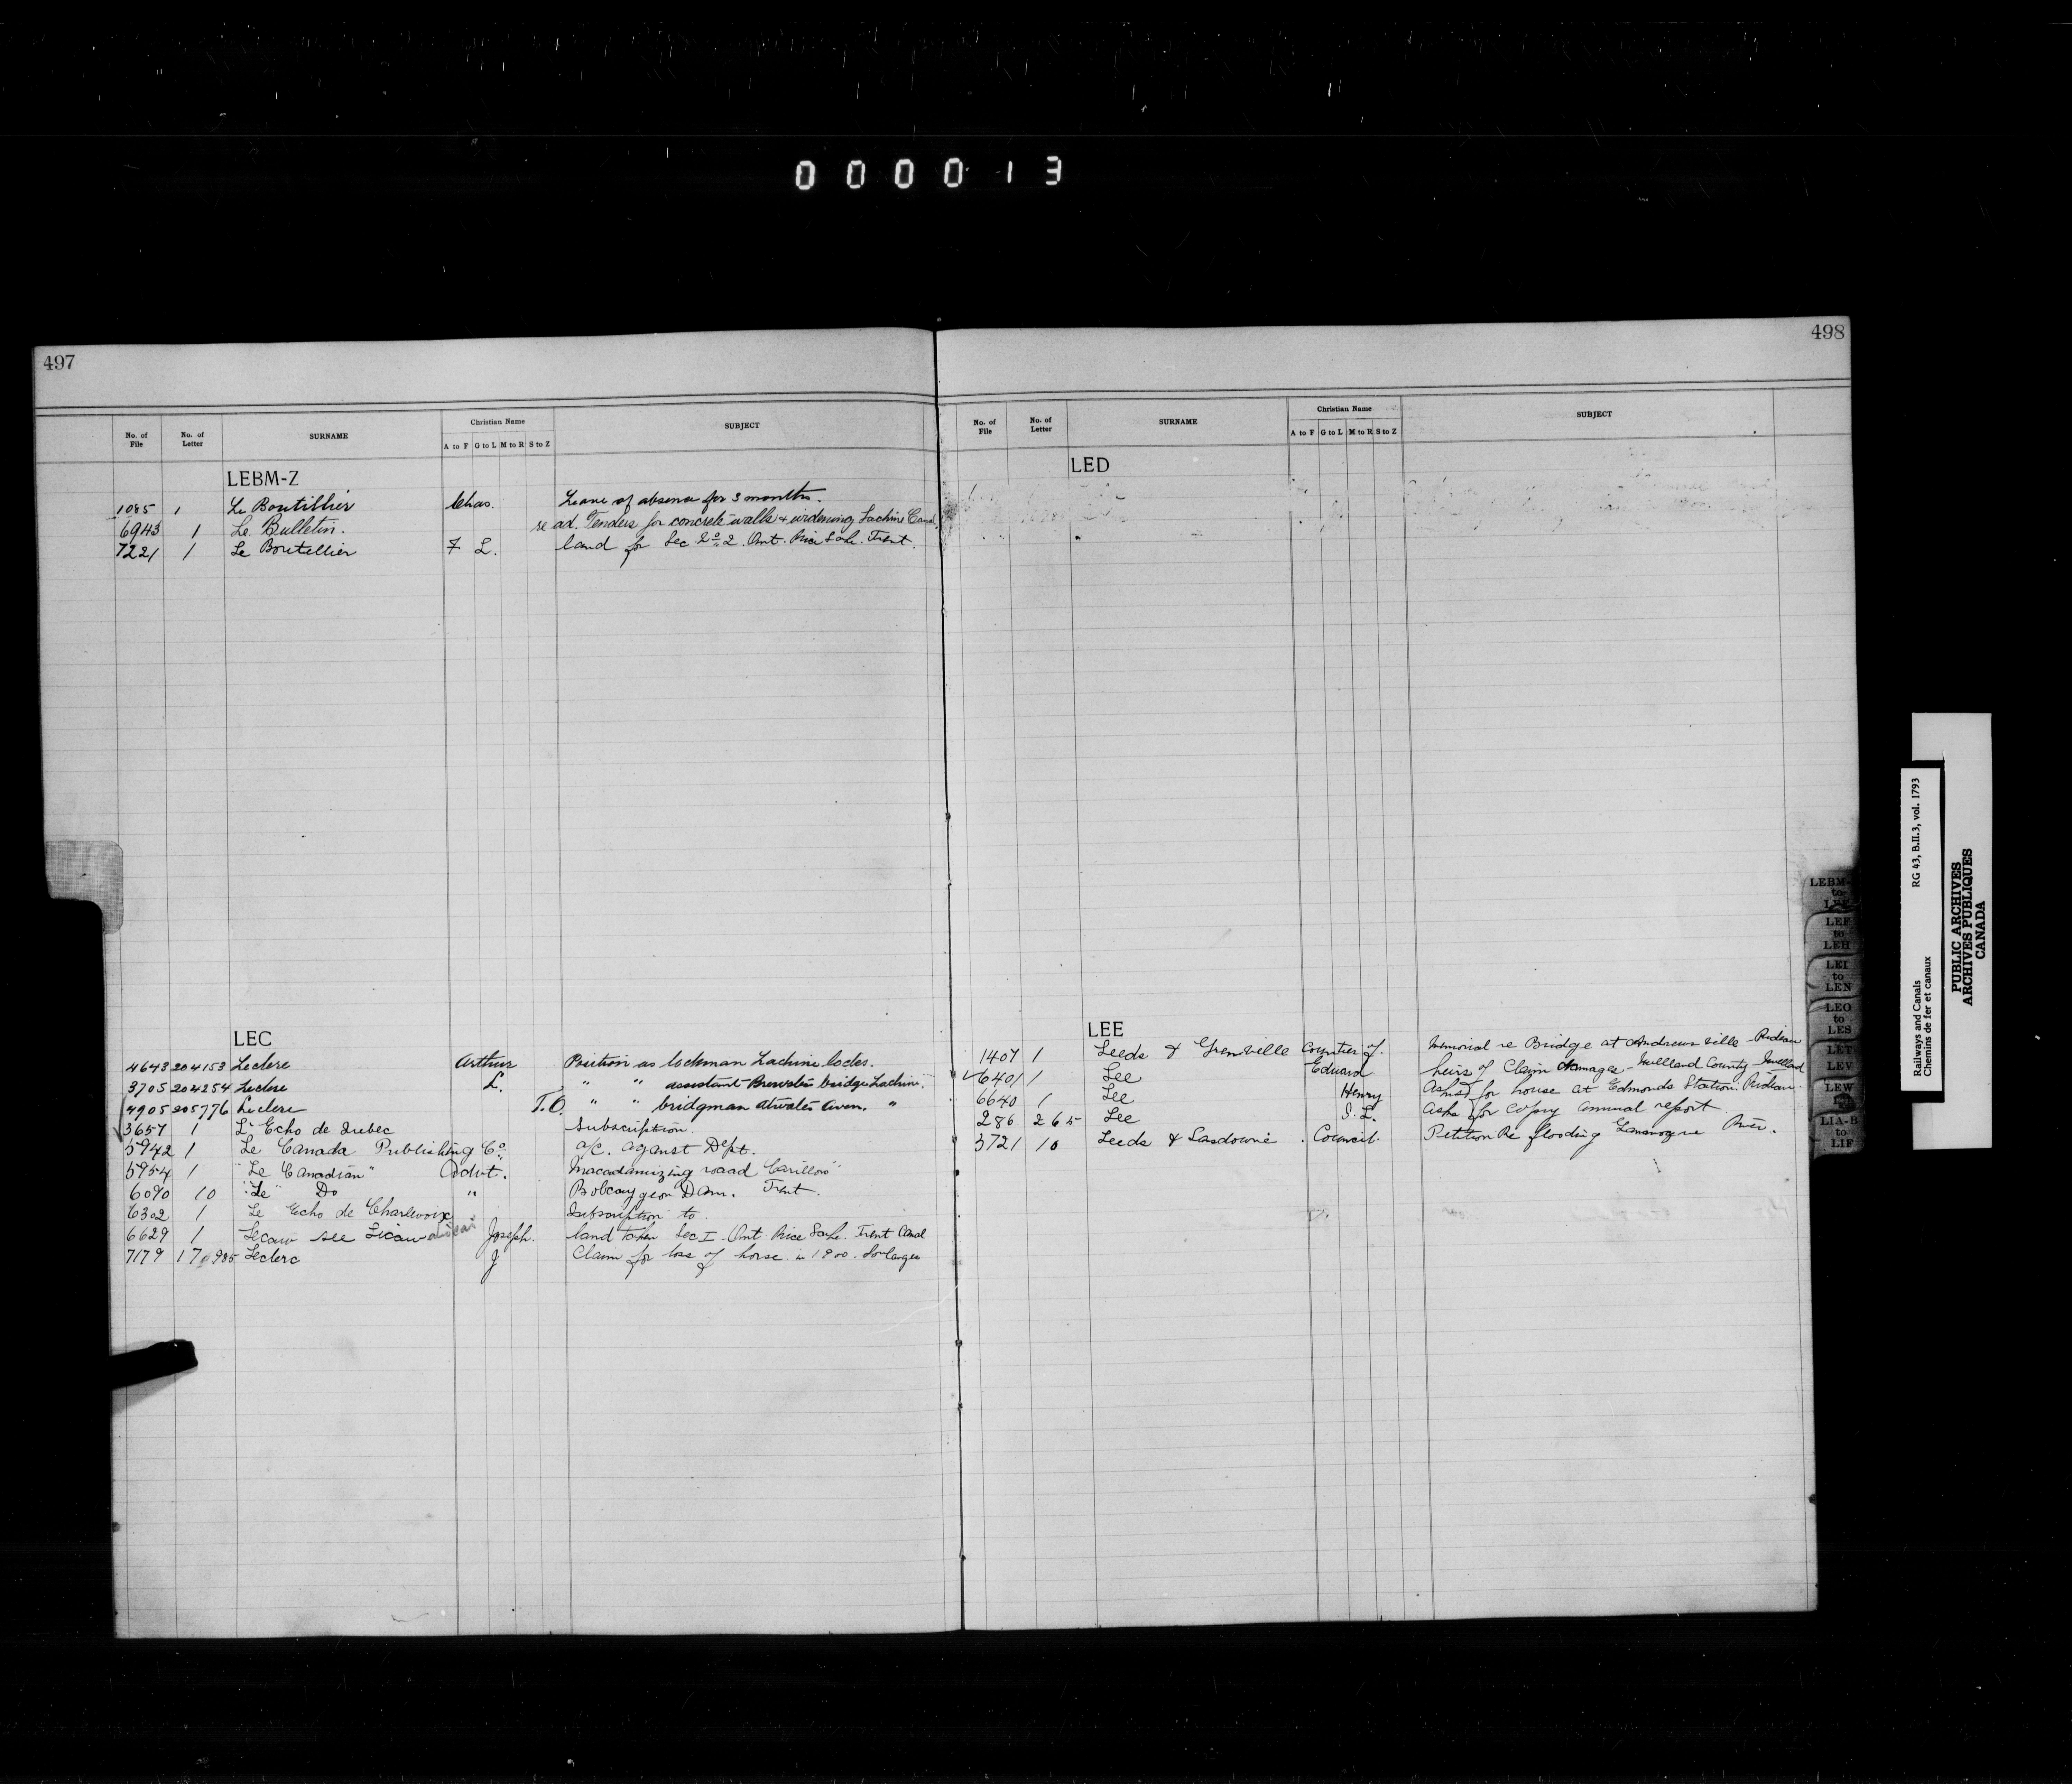 000013
497
No. of File No. of Letter SURNAME Christian Name A to F G to L M to R S to Z SUBJECT
LEBM-Z
1085 1 Le Boutillier Chas. Leave of absence for 3 months.
6943 1 Le Bulletin. re ad. Tenders for concrete walls & widening Lachine Canal
7221 1 Le Boutellier F L. land for Sec No. 2. Ont. Rice Lake. Trent.
LEC
4643 204153 Leclere Arthur Position as lockman Lachine locks.
3705 204254 Leclere L. " " assistant Brewster bridge Lachine.
4905 205776 Leclere T.O. " " bridgman Atwater Aven. "
3657 1 L'Echo de Quebec Subscription
5942 1 Le Canada Publishing Co. a/c. against Dept.
5954 1 "Le Canadian" Advt. Macadamizing road "Carillon"
6090 10 "Le" Do " Bobcaygeon Dam. Trent.
6302 1 Le Echo de Charlevoix Subscription to.
6629 1 Lecaw see Licaw Joseph. land taken Sec I Ont. Rice Lake. Trent Canal
7179 170985 Leclerc J Claim for loss of horse in 1900. Soulanges
498
No. of File No. of Letter SURNAME Christian Name A to F G to L M to R S to Z SUBJECT
LED
LEE
1407 1 Leeds & Grenville Counties of. Memorial re Bridge at Andrewsville - Rideau
6401 1 Lee Edward heirs of Claim damages - Welland County - Welland
6640 1 Lee Henry Asked for house at Edmonds Station. Rideau.
286 265 Lee S. L. Asks for copy annual report
3721 10 Leeds & Lansdowne Council. Petition Re flooding Gananoque River.
LEBM-
to
LEF
to
LEH
LEI
to
LEN
LEO
to
LES
LET
LEV
LEW
LIA-B
to
LIF
Railways and Canals RG 43, B.II.3, vol. 1793
Chemins de fer et canaux
PUBLIC ARCHIVES
ARCHIVES PUBLIQUES
CANADA